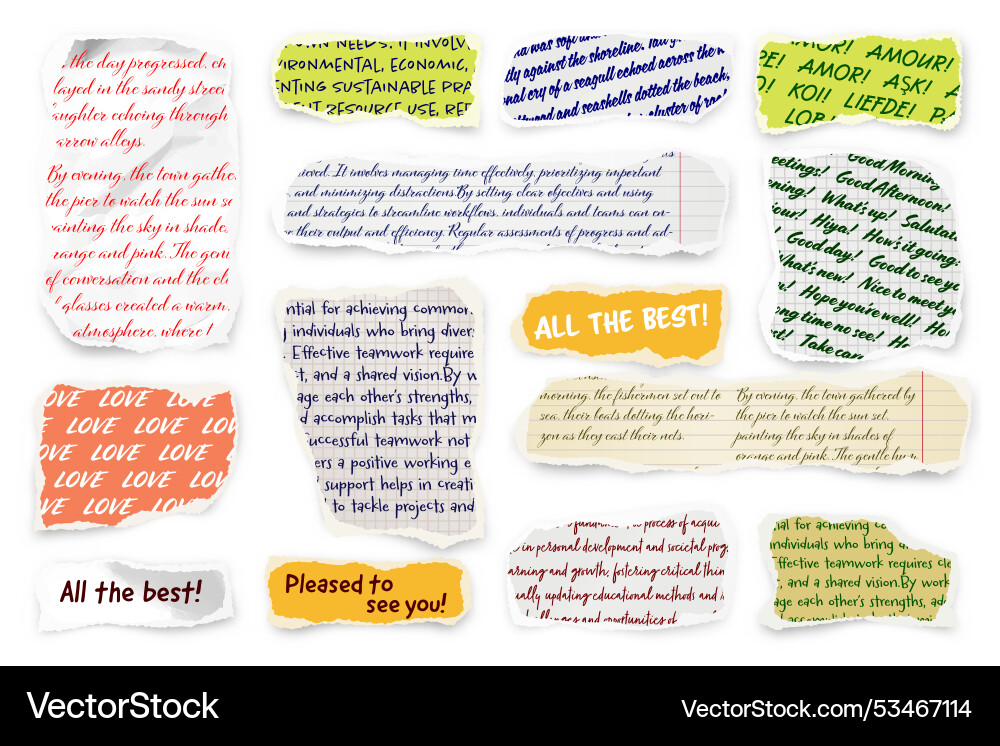 the day progressed, ch
layed in the sandy street
aughter echoing through
arrow alleys.
By evening, the town gathe
the pier to watch the sun se
ainting the sky in shade
range and pink. The gent
of conversation and the cl
glasses created a warm,
atmosphere, where l
OWN NEEDS. IT INVOLV
IRONMENTAL, ECONOMIC,
ENTING SUSTAINABLE PRA
NT RESOURCE USE, REF
na was soft and
tly against the shoreline. Tall
onal cry of a seagull echoed across the
ftwood and seashells dotted the beach,
cluster of
AMOR! AMOUR!
PE! AMOR! AŞK! A
O! KOI! LIEFDE! P
LOB
ieved. It involves managing time effectively, prioritizing important
, and minimizing distractions.By setting clear objectives and using
and strategies to streamline workflows, individuals and teams can en-
e their output and efficiency. Regular assessments of progress and ad-
Good Morning
eetings! Good Afternoon!
ening! What's up! Salutat
jour! Hiya! How's it going
! Good day! Good to see yo
What's new! Nice to meet y
u! Hope you're well! Ho
ong time no see! Ho
st! Take care
ntial for achieving common
individuals who bring diver
Effective teamwork require
t, and a shared vision.By w
age each other's strengths,
d accomplish tasks that m
uccessful teamwork not
ers a positive working e
support helps in creati
to tackle projects and
ALL THE BEST!
morning, the fishermen set out to
sea, their boats dotting the hori-
zon as they cast their nets.
By evening, the town gathered by
the pier to watch the sun set,
painting the sky in shades of
orange and pink. The gentle hum
OVE LOVE LOVE
LOVE LOVE LOV
OVE LOVE LOVE
LOVE LOVE LOV
VE LOVE LOV
All the best!
Pleased to
see you!
a process of acqui
in personal development and societal prog
arning and growth, fostering critical thin
ually updating educational methods and
llenges and opportunities of
ial for achieving co
individuals who bring d
ffective teamwork requires cle
, and a shared vision.By work
age each other's strengths, add
VectorStock
VectorStock.com/53467114